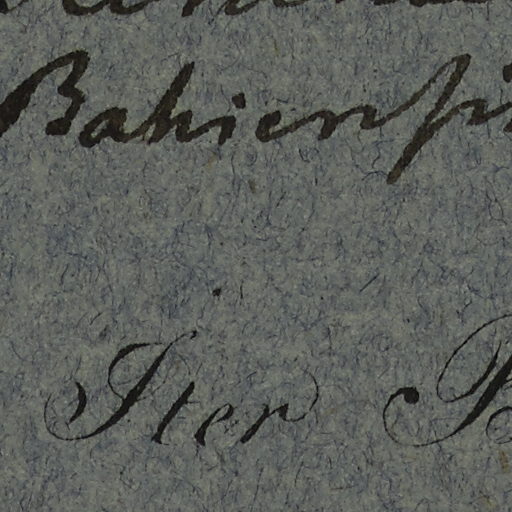 Bahiensi
Iter B